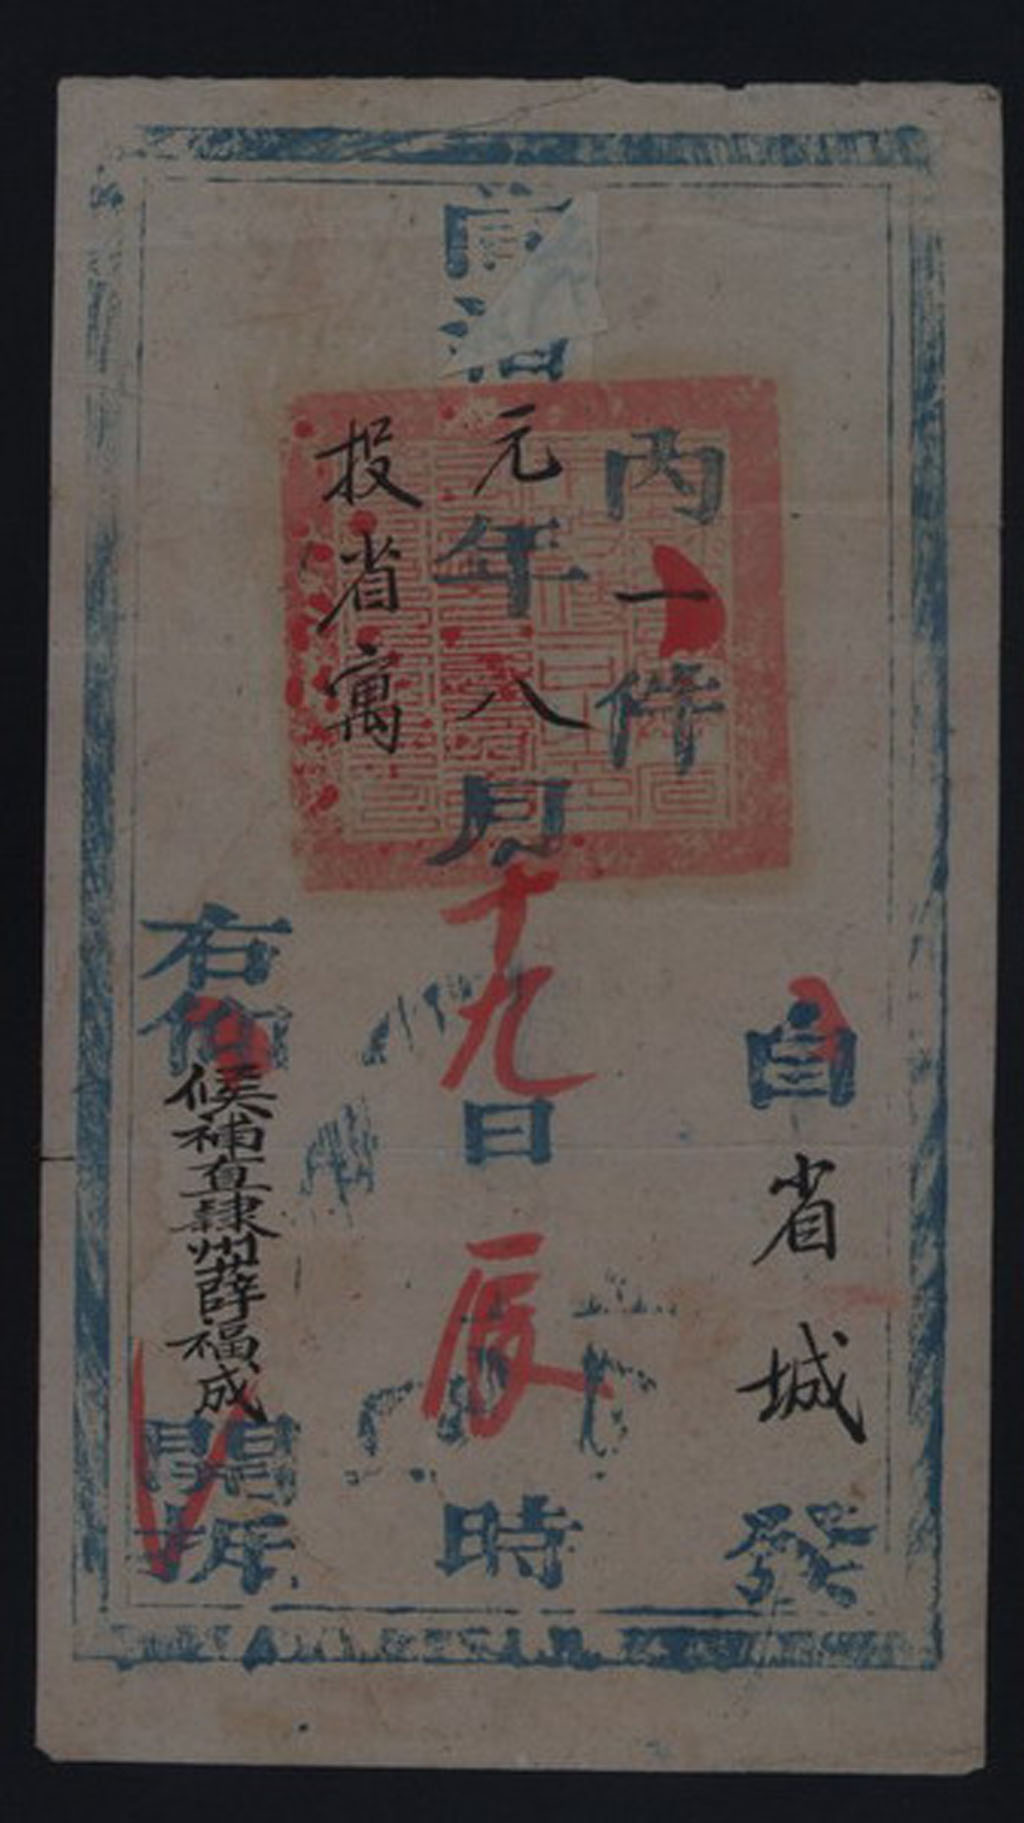 自省城發
內一件
元年八月十九日辰時
投省寓
右仰候補直隸州薛福成開拆